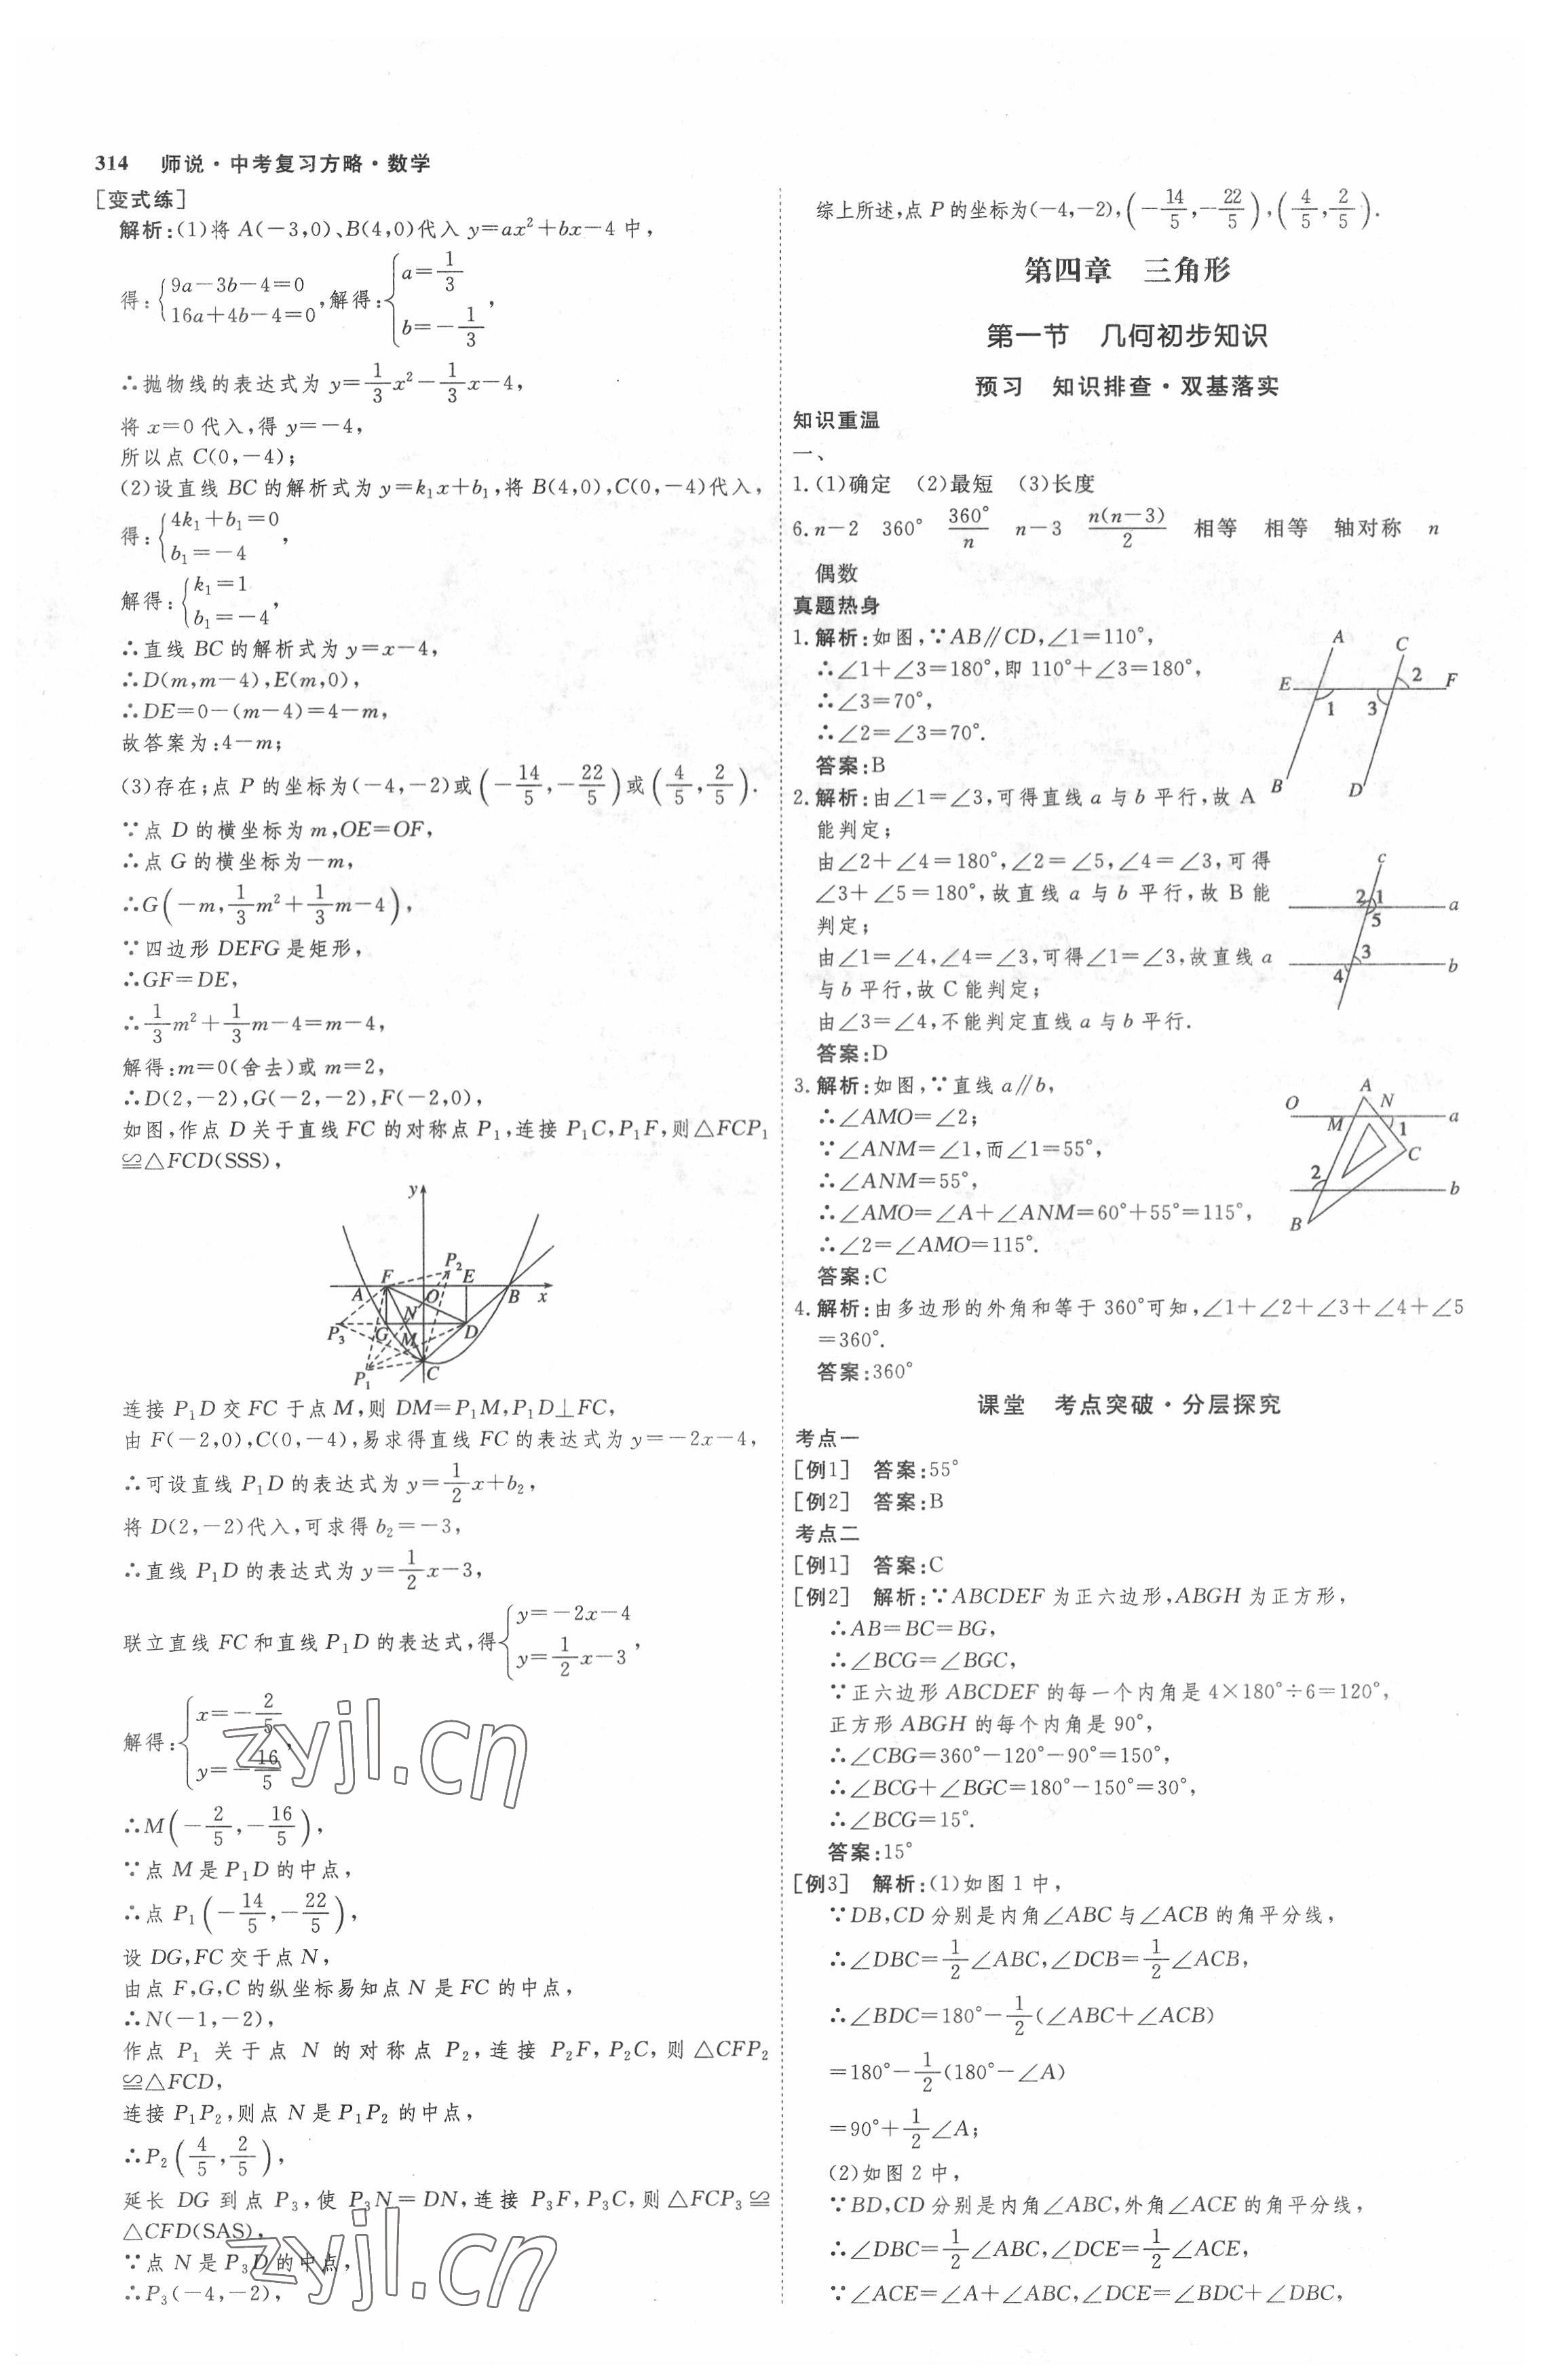 314 师说·中考复习方略·数学
[变式练]
解析:(1)将 A(-3,0)、B(4,0)代入 y=ax²+bx-4 中,
得:{9a-3b-4=0 16a+4b-4=0,解得:{a=1/3 b=-1/3,
∴抛物线的表达式为 y=1/3x²-1/3x-4,
将 x=0 代入,得 y=-4,
所以点 C(0,-4);
(2)设直线 BC 的解析式为 y=k₁x+b₁,将 B(4,0),C(0,-4)代入,
得:{4k₁+b₁=0 b₁=-4,
解得:{k₁=1 b₁=-4,
∴直线 BC 的解析式为 y=x-4,
∴D(m,m-4),E(m,0),
∴DE=0-(m-4)=4-m,
故答案为:4-m;
(3)存在;点 P 的坐标为(-4,-2)或(-14/5,-22/5)或(4/5,2/5).
∵点 D 的横坐标为 m,OE=OF,
∴点 G 的横坐标为-m,
∴G(-m,1/3m²+1/3m-4),
∵四边形 DEFG 是矩形,
∴GF=DE,
∴1/3m²+1/3m-4=m-4,
解得:m=0(舍去)或 m=2,
∴D(2,-2),G(-2,-2),F(-2,0),
如图,作点 D 关于直线 FC 的对称点 P₁,连接 P₁C,P₁F,则△FCP₁
≌△FCD(SSS),
y
P₂
F E
A O B x
N
P₃ G M D
P₁ C
连接 P₁D 交 FC 于点 M,则 DM=P₁M,P₁D⊥FC,
由 F(-2,0),C(0,-4),易求得直线 FC 的表达式为 y=-2x-4,
∴可设直线 P₁D 的表达式为 y=1/2x+b₂,
将 D(2,-2)代入,可求得 b₂=-3,
∴直线 P₁D 的表达式为 y=1/2x-3,
联立直线 FC 和直线 P₁D 的表达式,得{y=-2x-4 y=1/2x-3,
解得:{x=-2/5 y=-16/5,
∴M(-2/5,-16/5),
∵点 M 是 P₁D 的中点,
∴点 P₁(-14/5,-22/5),
设 DG,FC 交于点 N,
由点 F,G,C 的纵坐标易知点 N 是 FC 的中点,
∴N(-1,-2),
作点 P₁ 关于点 N 的对称点 P₂,连接 P₂F,P₂C,则△CFP₂
≌△FCD,
连接 P₁P₂,则点 N 是 P₁P₂ 的中点,
∴P₂(4/5,2/5),
延长 DG 到点 P₃,使 P₃N=DN,连接 P₃F,P₃C,则△FCP₃≌
△CFD(SAS),
∵点 N 是 P₃D 的中点,
∴P₃(-4,-2),
综上所述,点 P 的坐标为(-4,-2),(-14/5,-22/5),(4/5,2/5).
第四章 三角形
第一节 几何初步知识
预习 知识排查·双基落实
知识重温
一、
1.(1)确定 (2)最短 (3)长度
6.n-2 360° 360°/n n-3 n(n-3)/2 相等 相等 轴对称 n
偶数
真题热身
1.解析:如图,∵AB∥CD,∠1=110°,
∴∠1+∠3=180°,即 110°+∠3=180°,
∴∠3=70°,
∴∠2=∠3=70°.
答案:B
A C
E 2 F
1 3
B D
2.解析:由∠1=∠3,可得直线 a 与 b 平行,故 A
能判定;
由∠2+∠4=180°,∠2=∠5,∠4=∠3,可得
∠3+∠5=180°,故直线 a 与 b 平行,故 B 能
判定;
由∠1=∠4,∠4=∠3,可得∠1=∠3,故直线 a
与 b 平行,故 C 能判定;
由∠3=∠4,不能判定直线 a 与 b 平行.
答案:D
c
2 1 a
5
3
4 b
3.解析:如图,∵直线 a∥b,
∴∠AMO=∠2;
∵∠ANM=∠1,而∠1=55°,
∴∠ANM=55°,
∴∠AMO=∠A+∠ANM=60°+55°=115°,
∴∠2=∠AMO=115°.
答案:C
A
O N a
M 1
C
2 b
B
4.解析:由多边形的外角和等于 360°可知,∠1+∠2+∠3+∠4+∠5
=360°.
答案:360°
课堂 考点突破·分层探究
考点一
[例1] 答案:55°
[例2] 答案:B
考点二
[例1] 答案:C
[例2] 解析:∵ABCDEF 为正六边形,ABGH 为正方形,
∴AB=BC=BG,
∴∠BCG=∠BGC,
∵正六边形 ABCDEF 的每一个内角是 4×180°÷6=120°,
正方形 ABGH 的每个内角是 90°,
∴∠CBG=360°-120°-90°=150°,
∴∠BCG+∠BGC=180°-150°=30°,
∴∠BCG=15°.
答案:15°
[例3] 解析:(1)如图 1 中,
∵DB,CD 分别是内角∠ABC 与∠ACB 的角平分线,
∴∠DBC=1/2∠ABC,∠DCB=1/2∠ACB,
∴∠BDC=180°-1/2(∠ABC+∠ACB)
=180°-1/2(180°-∠A)
=90°+1/2∠A;
(2)如图 2 中,
∵BD,CD 分别是内角∠ABC,外角∠ACE 的角平分线,
∴∠DBC=1/2∠ABC,∠DCE=1/2∠ACE,
∵∠ACE=∠A+∠ABC,∠DCE=∠BDC+∠DBC,
zyjl.cn
zyjl.cn